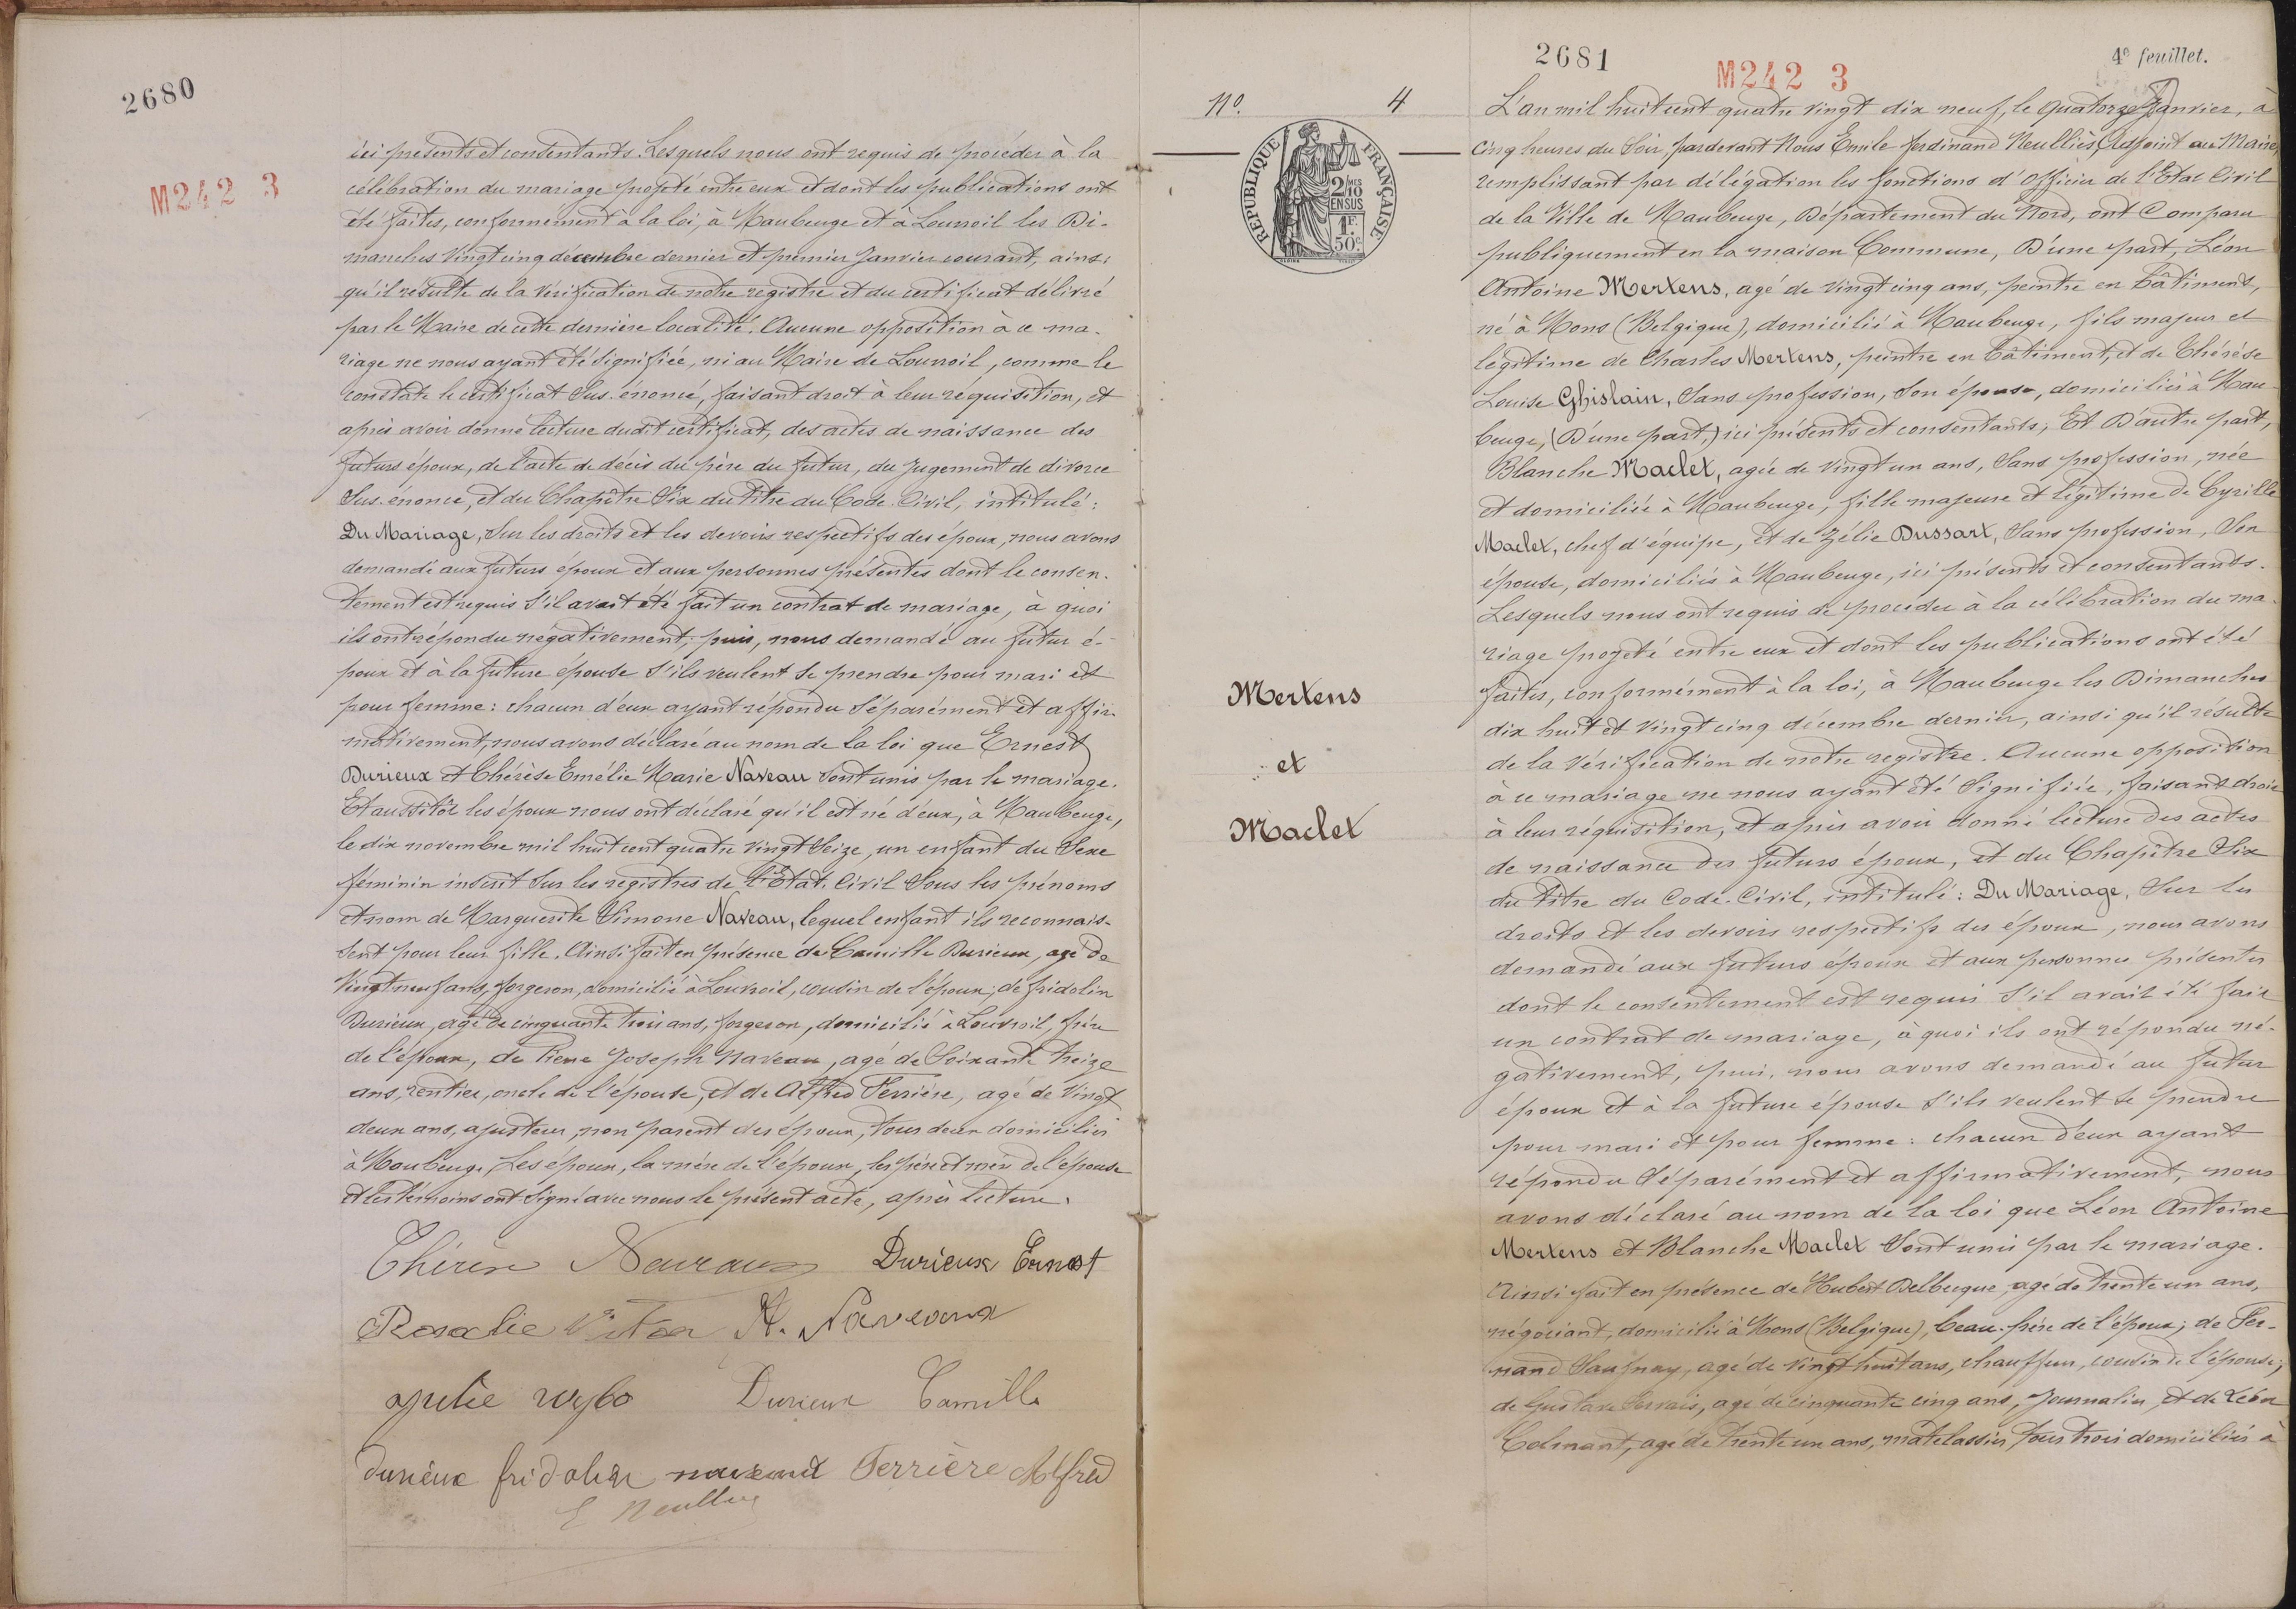 2680
M242 3
ici présents et consentants. Lesquels nous ont requis de procéder à la
célébration du mariage projeté entre eux et dont les publications ont
été faites, conformément à la loi, à Maubeuge et à Louvroil les Di-
manches vingt cinq décembre dernier et premier Janvier courant, ainsi
qu'il résulte de la vérification de notre registre et du certificat délivré
par le Maire de cette dernière localité. Aucune opposition à ce ma-
riage ne nous ayant été signifiée, ni au Maire de Louvroil, comme le
constate le certificat sus-énoncé, faisant droit à leur réquisition, et
après avoir donné lecture dudit certificat, des actes de naissance des
futurs époux, de l'acte de décès du père du futur, du jugement de divorce
sus-énoncé, et du Chapitre Six du titre du Code Civil, intitulé :
Du Mariage, sur les droits et les devoirs respectifs des époux, nous avons
demandé aux futurs époux et aux personnes présentes dont le consen-
tement est requis s'il avait été fait un contrat de mariage, à quoi
ils ont répondu négativement; puis, nous demandé au futur é-
poux et à la future épouse s'ils veulent se prendre pour mari et
pour femme : chacun d'eux ayant répondu séparément et affir-
mativement, nous avons déclaré au nom de la loi que Ernest
Durieux et Thérèse Emélie Marie Naveau sont unis par le mariage.
Et aussitôt les époux nous ont déclaré qu'il est né d'eux, à Maubeuge,
le dix novembre mil huit cent quatre vingt seize, un enfant du sexe
féminin inscrit sur les registres de l'Etat-Civil sous les prénoms
et nom de Marguerite Simone Naveau, lequel enfant ils reconnais-
sent pour leur fille. Ainsi fait en présence de Camille Durieux, agé de
vingt neuf ans, forgeron, domicilié à Louvroil, cousin de l'époux; de fridolin
Durieux, agé de cinquante trois ans, forgeron, domicilié à Louvroil, frère
de l'époux, de Pierre Joseph Naveau, agé de soixante treize
ans, rentier, oncle de l'épouse, et de Alfred Ferrière, agé de vingt
deux ans, ajusteur, non parent des époux, tous deux domiciliés
à Maubeuge. Les époux, la mère de l'époux, les père et mère de l'épouse
et les témoins ont signé avec nous le présent acte, après lecture.
Thérèse Naveau Durieux Ernest
Rosalie N. Naveaux
Julie Durieux Camille
durieux fridolin naveaux Ferrière Alfred
E Neulliès
2681
M242 3
4e feuillet.
No. 4
RÉPUBLIQUE FRANÇAISE
2/10 MES
EN SUS
1F.
50c.
Mertens
et
Maclet
L'an mil huit cent quatre vingt dix neuf, le quatorze Janvier, à
cinq heures du soir, pardevant Nous Emile ferdinand Neulliès, Adjoint au Maire,
remplissant par délégation les fonctions d'Officier de l'Etat Civil
de la Ville de Maubeuge, Département du Nord, ont Comparu
publiquement en la maison Commune, D'une part, Léon
Antoine Mertens, agé de vingt cinq ans, peintre en bâtiment,
né à Mons (Belgique), domicilié à Maubeuge, fils majeur et
légitime de Charles Mertens, peintre en bâtiment, et de Thérèse
Louise Ghislain, sans profession, son épouse, domiciliés à Mau-
beuge, (D'une part,) ici présents et consentants, Et D'autre part,
Blanche Maclet, agée de vingt un ans, sans profession, née
et domiciliée à Maubeuge, fille majeure et légitime de Cyrille
Maclet, chef d'équipe, et de Zélie Dussart, sans profession, son
épouse, domiciliés à Maubeuge, ici présents et consentants.
Lesquels nous ont requis de procéder à la célébration du ma-
riage projeté entre eux et dont les publications ont été
faites, conformément à la loi, à Maubeuge les Dimanches
dix huit et vingt cinq décembre dernier, ainsi qu'il résulte
de la vérification de notre registre. Aucune opposition
à ce mariage ne nous ayant été signifiée, faisant droit
à leur réquisition, et après avoir donné lecture des actes
de naissance des futurs époux, et du Chapitre Six
du titre du Code-Civil, intitulé : Du Mariage, sur les
droits et les devoirs respectifs des époux, nous avons
demandé aux futurs époux et aux personnes présentes
dont le consentement est requis s'il avait été fait
un contrat de mariage, à quoi ils ont répondu né-
gativement, puis, nous avons demandé au futur
époux et à la future épouse s'ils veulent se prendre
pour mari et pour femme : chacun d'eux ayant
répondu séparément et affirmativement, nous
avons déclaré au nom de la loi que Léon Antoine
Mertens et Blanche Maclet sont unis par le mariage.
Ainsi fait en présence de Hubert Delbecque, agé de trente un ans,
négociant, domicilié à Mons (Belgique), beau-frère de l'époux; de Fer-
nand agé de vingt huit ans, chauffeur, cousin de l'épouse;
de Gustave Servais, agé de cinquante cinq ans, Journalier, et de Léon
Colmant, agé de trente un ans, matelassier, tous trois domiciliés à